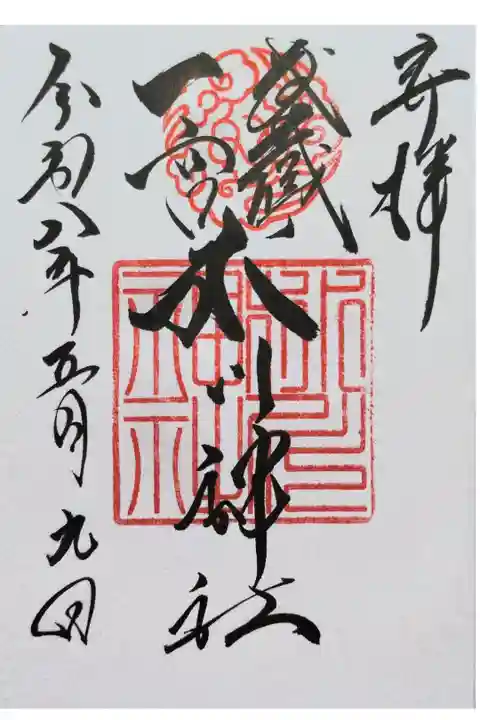 奉拝
武蔵
一宮
氷川神社
氷川
神社
令和八年五月九日